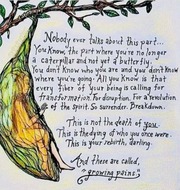 Nobody ever talks about this part...
You know, the part where you're no longer
a caterpillar and not yet a butterfly.
You don't know who you are and you don't know
where you're going. All you know is that
every fiber of your being is calling for
transformation. For disruption. For a revolution
of the Spirit. So surrender. Breakdown.
This is not the death of you.
This is the dying of who you once were.
This is your rebirth, darling.
And these are called,
"growing pains."